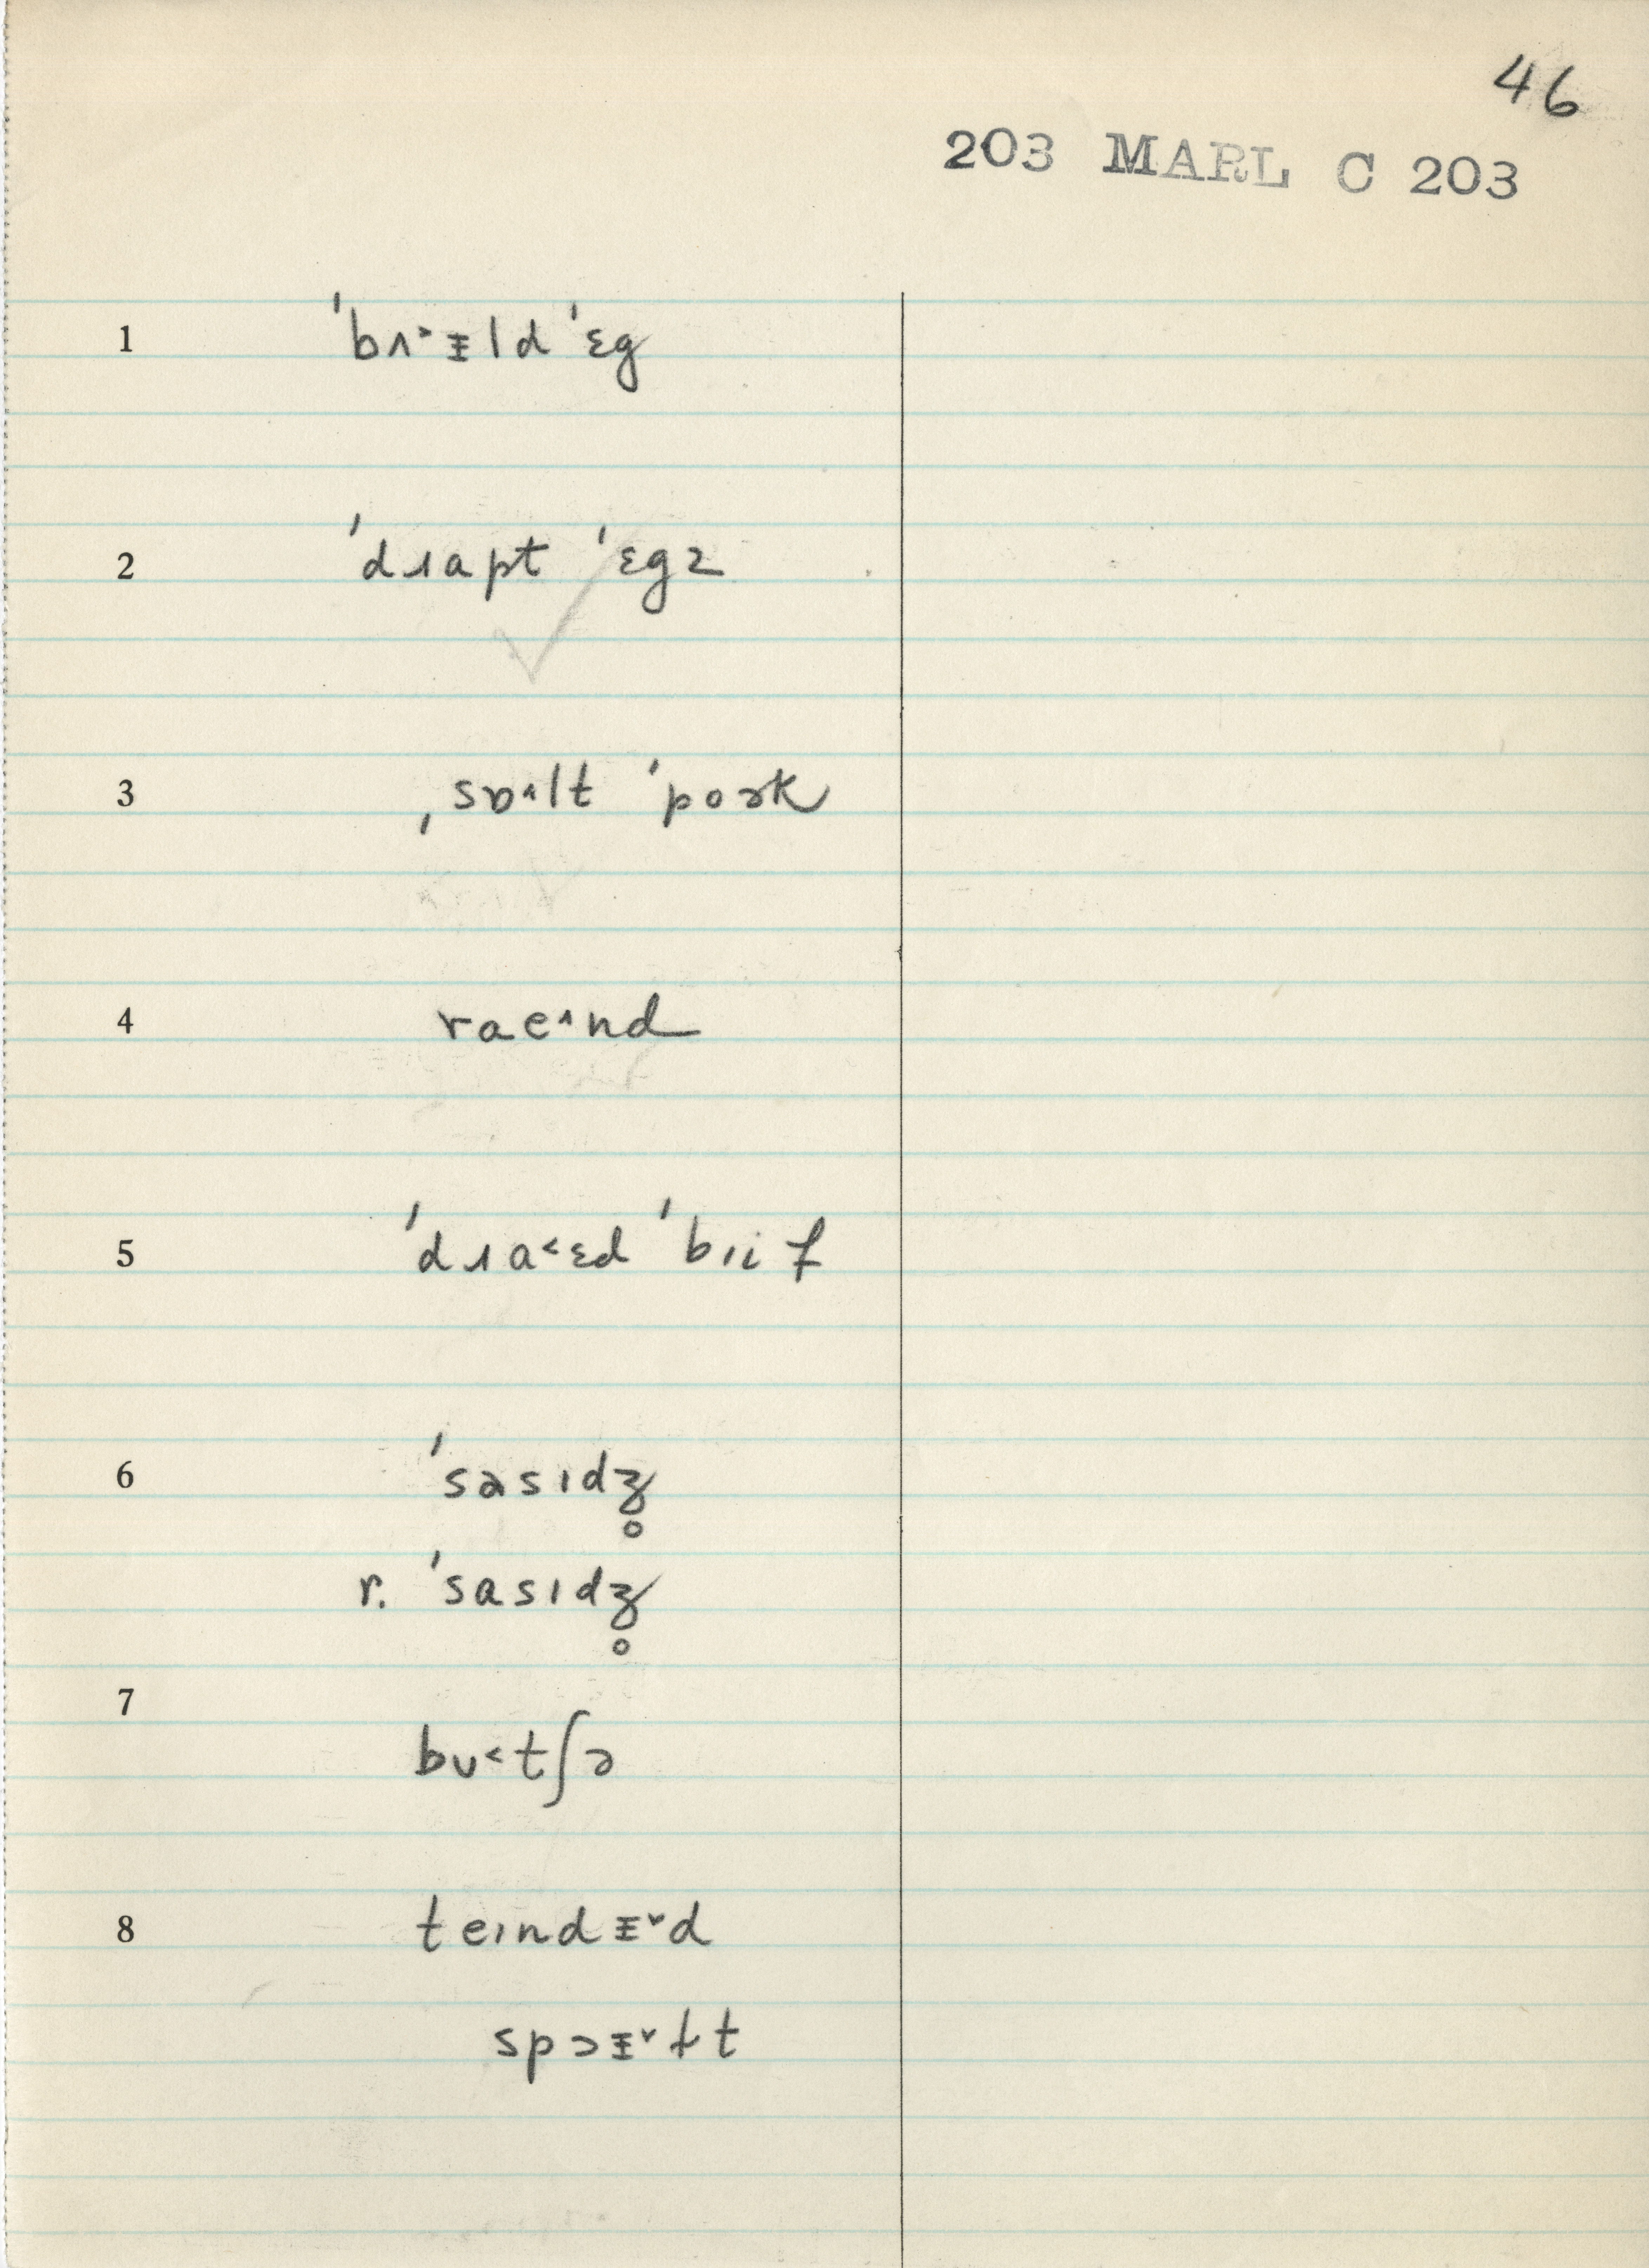 46
203 MARL C 203
1 ˈbʌ˃ᵻld ˈɛg
2 ˈdɹapt ˈɛgz
3 ˌsɒ˄lt ˈpoɚk
4 rae˄nd
5 ˈdɹa˂ɛd ˈbɪif
6 ˈsɔsɪdʒ̥
r. ˈsasɪdʒ̥
7 bʊ˂tʃɚ
8 teɪndᵻ˅d
spɔᵻ˅ɫt